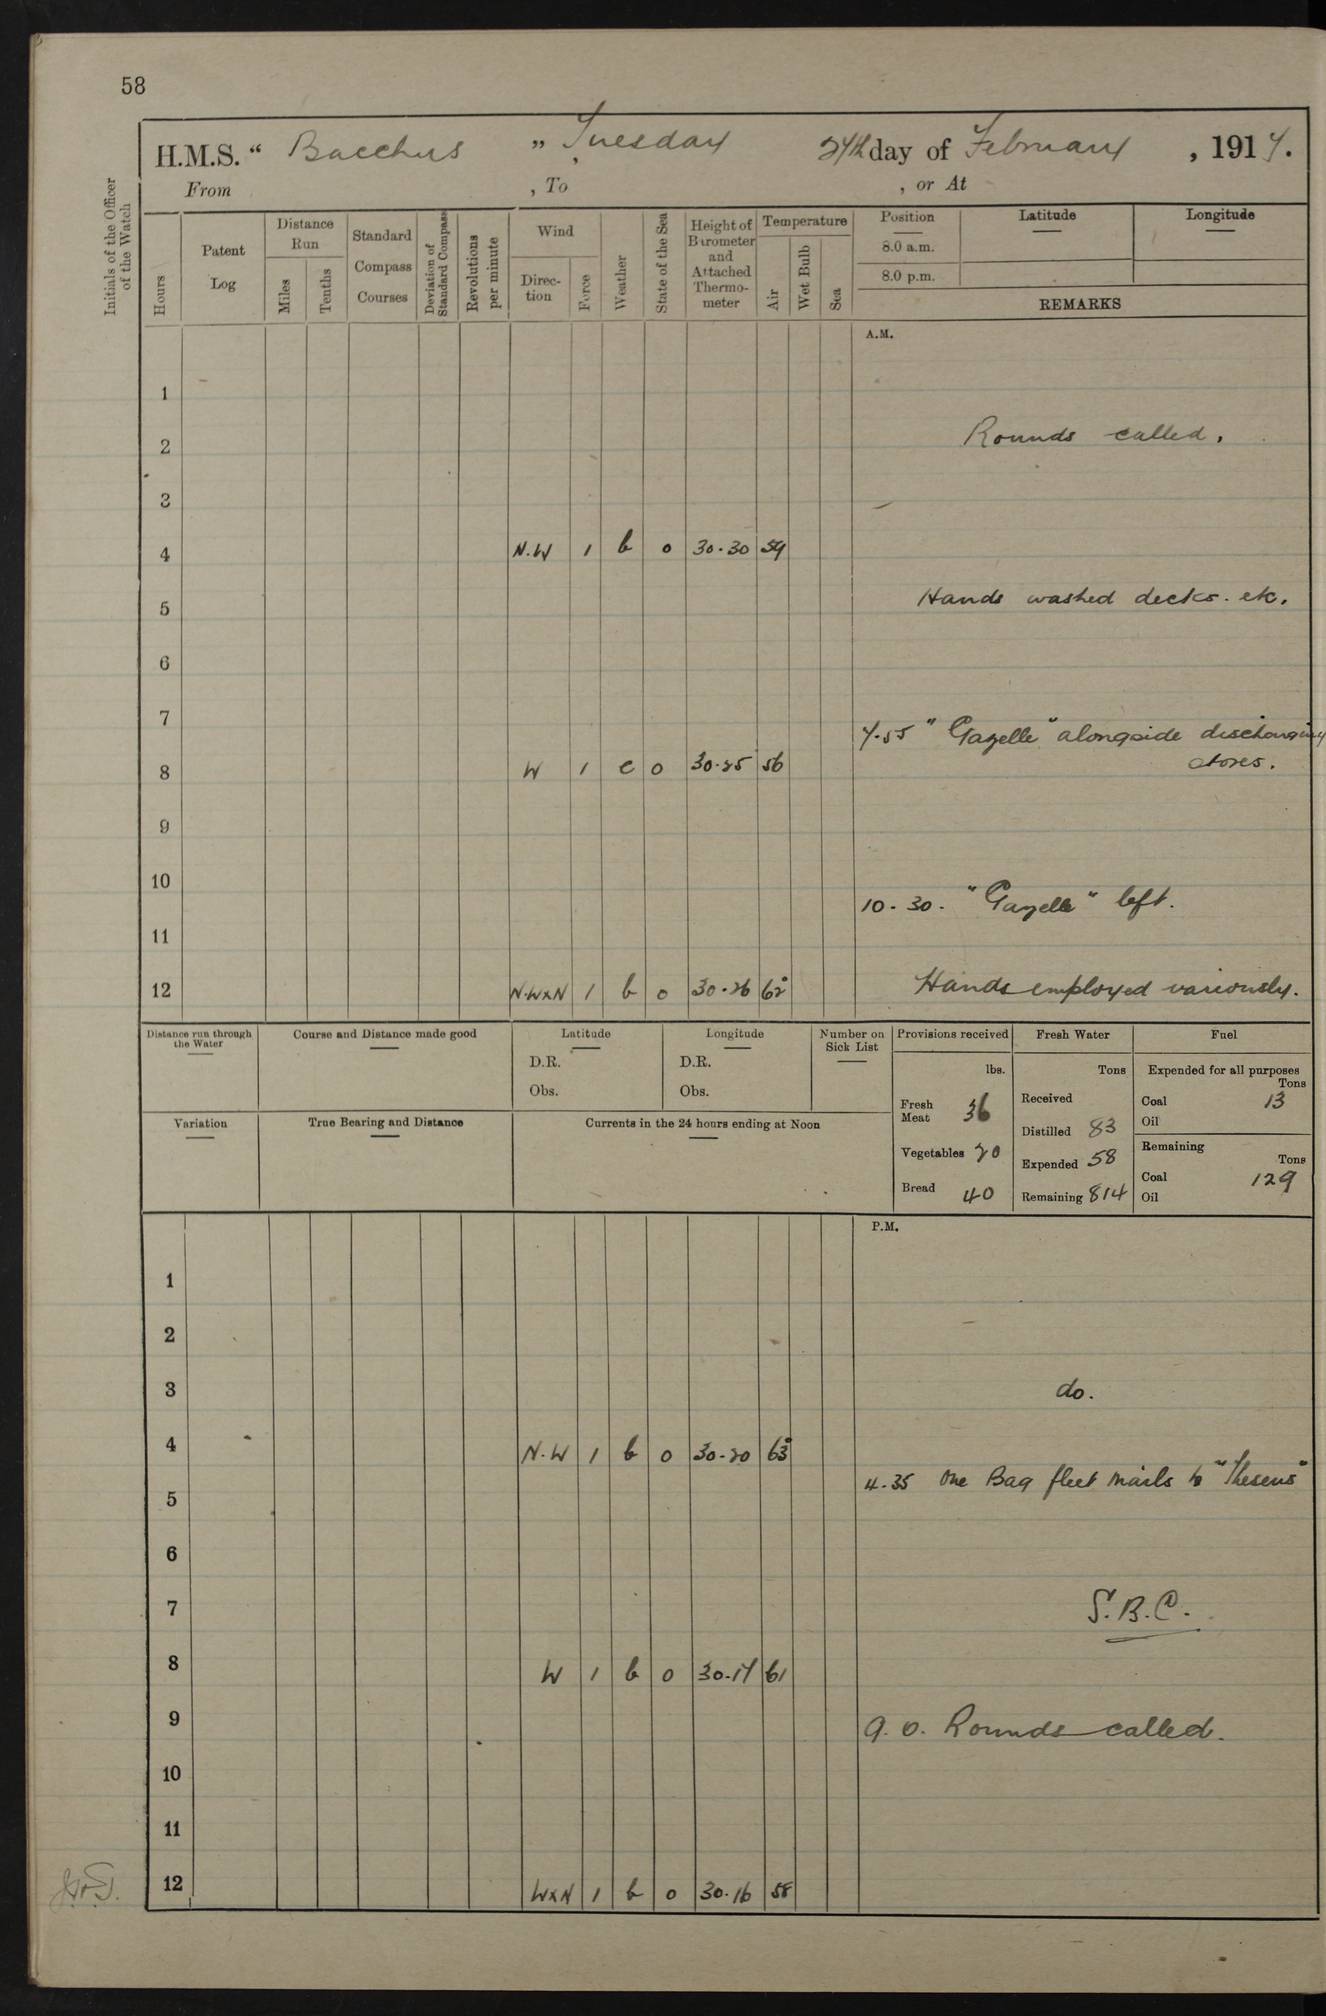 58
H.M.S. “ Bacchus ” Tuesday 27th day of February , 1917.
From , To , or At
Initials of the Officer of the Watch
Hours
Patent Log
Distance Run
Miles
Tenths
Standard Compass Courses
Deviation of Standard Compass
Revolutions per minute
Wind
Direc-tion
Force
Weather
State of the Sea
Height of Barometer and Attached Thermo-meter
Temperature
Air
Wet Bulb
Sea
Position
8.0 a.m.
8.0 p.m.
Latitude
Longitude
REMARKS
A.M.
1
2 Rounds called.
3
4 N.W 1 b 0 30.30 59
5 Hands washed decks. etc.
6
7
7.55 "Gazelle" alongside discharging
stores.
8 W 1 c 0 30.25 56
9
10
10.30. "Gazelle" left.
11
12 N.WxN 1 b 0 30.26 62° Hands employed variously.
Distance run through the Water
Course and Distance made good
Latitude
D.R.
Obs.
Longitude
D.R.
Obs.
Number on Sick List
Provisions received
lbs.
Fresh Meat 36
Vegetables 20
Bread 40
Fresh Water
Tons
Received
Distilled 83
Expended 58
Remaining 814
Fuel
Expended for all purposes
Tons
Coal 13
Oil
Remaining
Tons
Coal 129
Oil
Variation
True Bearing and Distance
Currents in the 24 hours ending at Noon
P.M.
1
2
3 do.
4 N.W 1 b 0 30.20 63°
4.35 One Bag fleet mails to "Theseus"
5
6
7 S.B.C.
8 W 1 b 0 30.17 61
9 9.0. Rounds called.
10
11
12 WxN 1 b 0 30.16 58